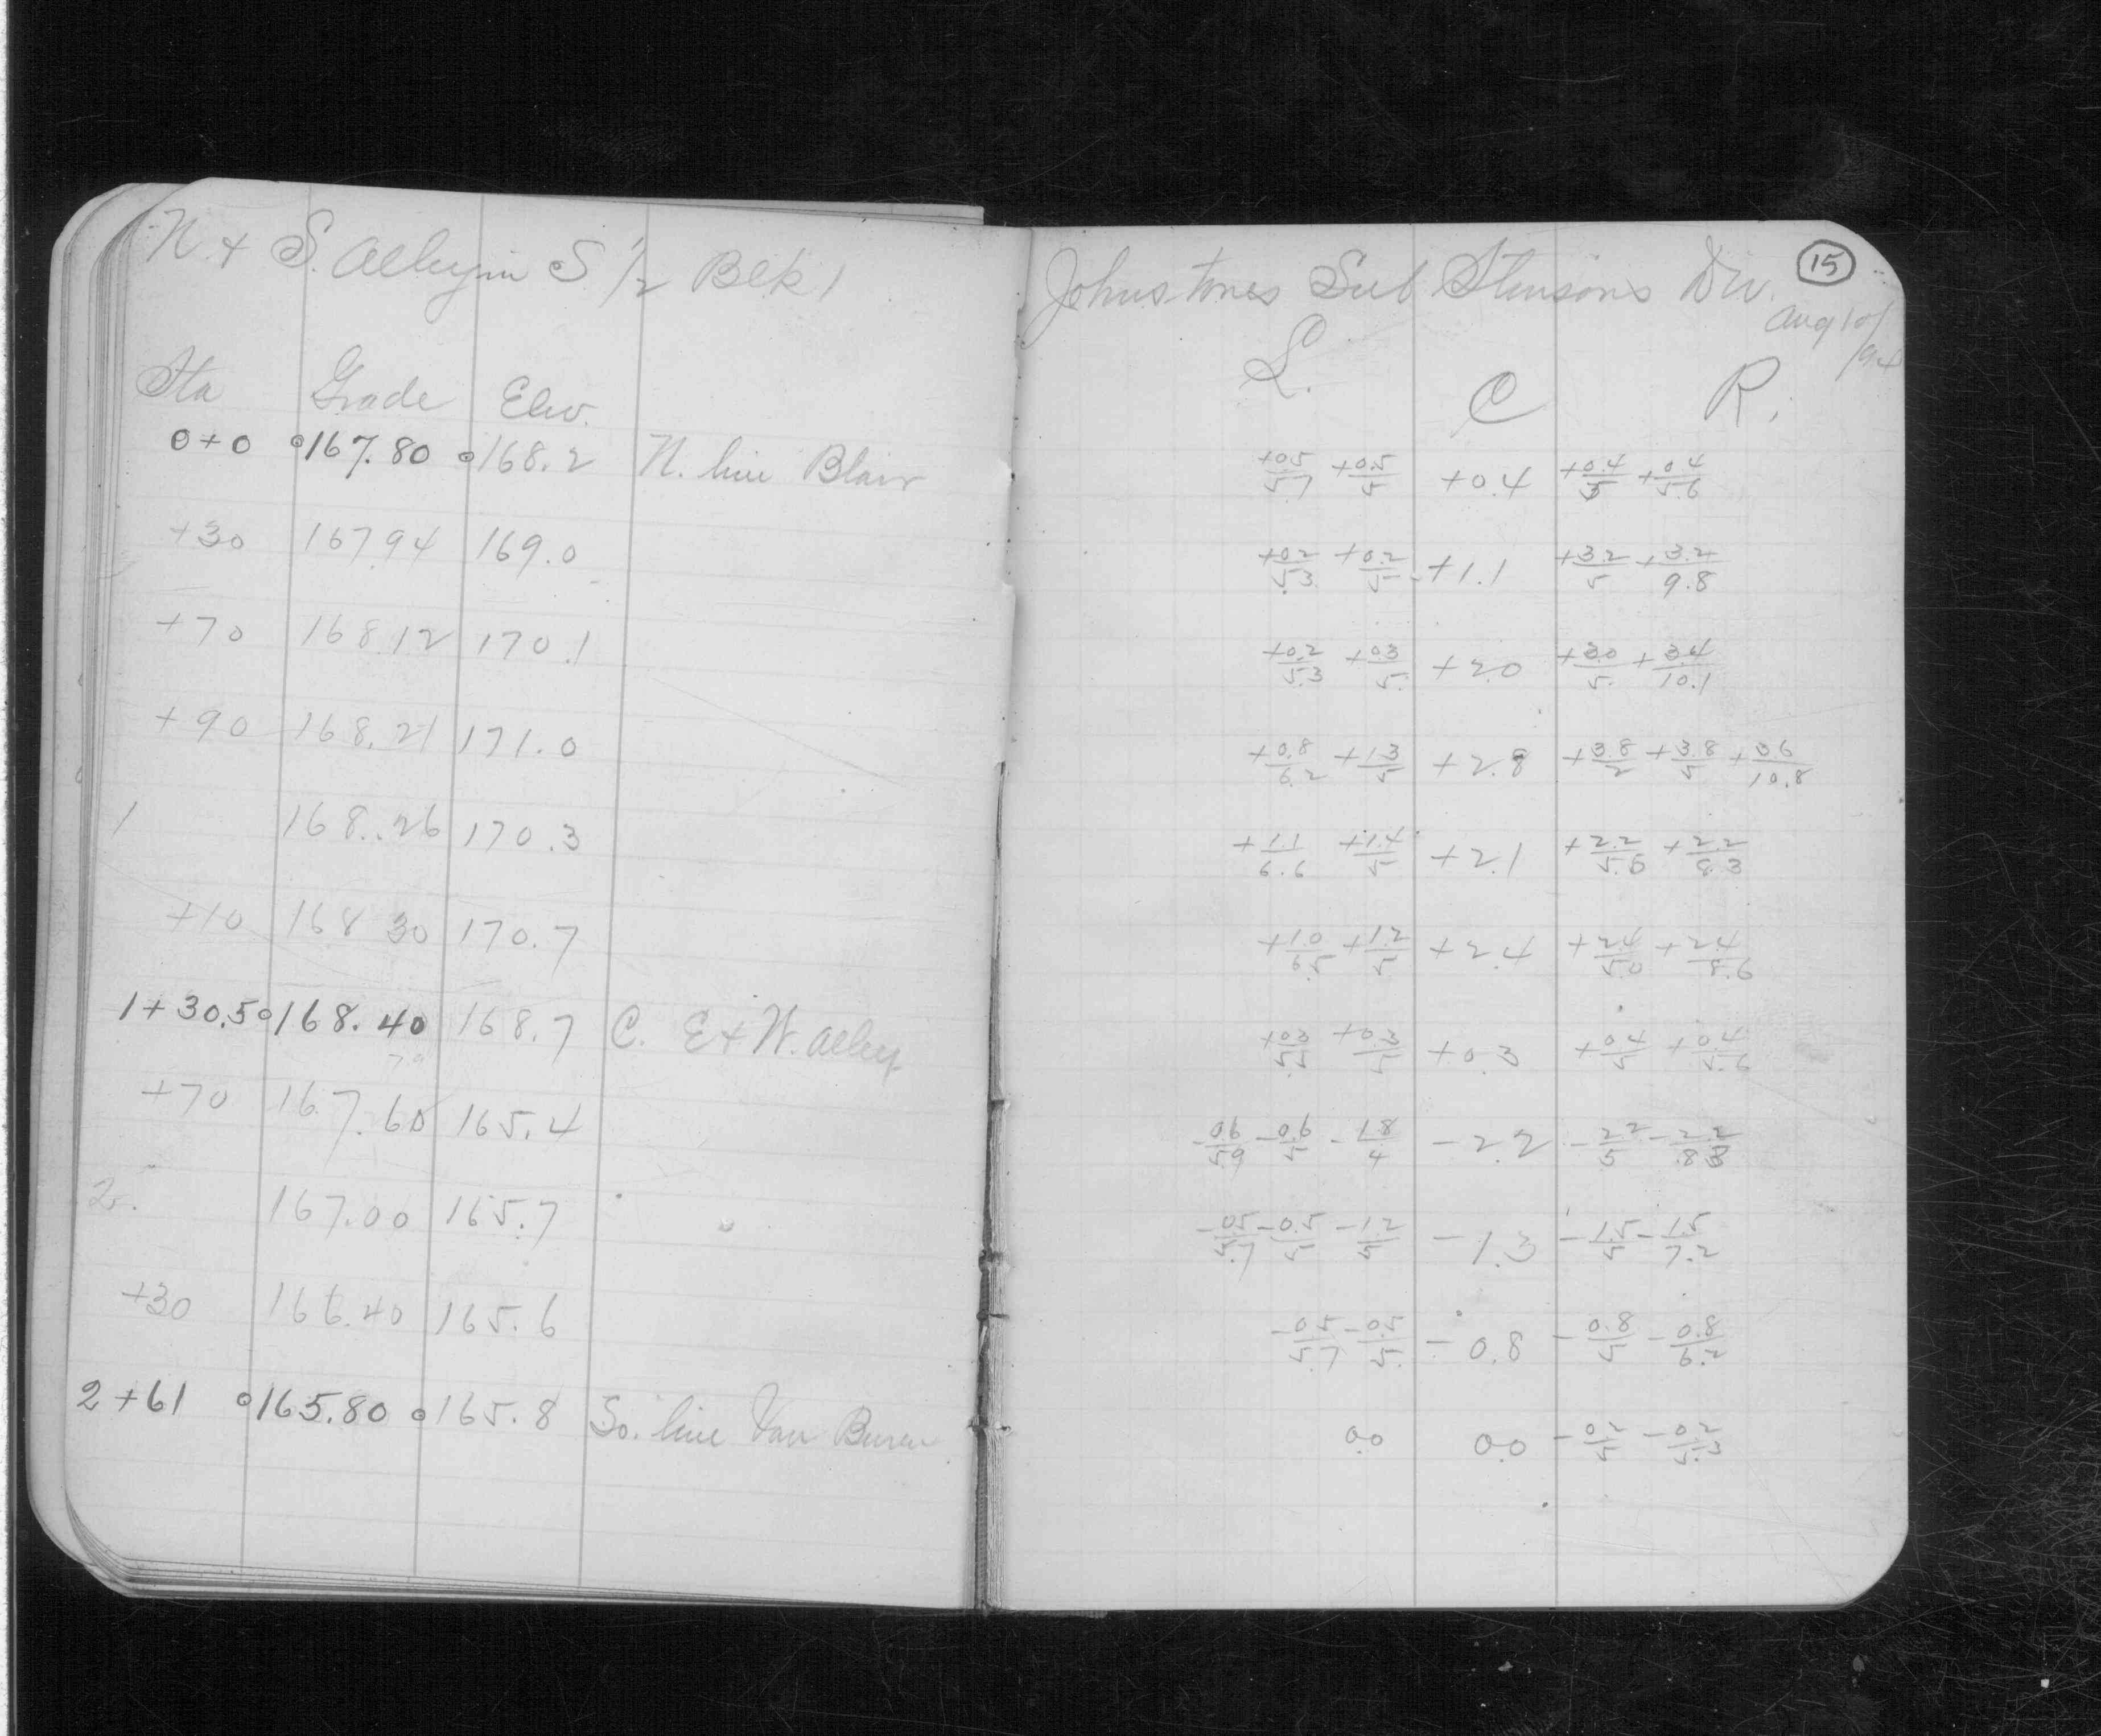 N. & S. Alley in S 1/2 Blk 1
Sta Grade Elev.
0+0 167.80 168.2 N. line Blair
+30 167.94 169.0
+70 168.12 170.1
+90 168.21 171.0
1 168.26 170.3
+10 168.30 170.7
1+30.5 168.40 168.7 C. E & W. Alley
+70 167.60 165.4
2. 167.00 165.7
+30 166.40 165.6
2+61 165.80 165.8 So. line Van Buren
15
Johnstones Sub Stinsons Div.
Aug 10/
L. C R.
+0.5/5.7 +0.5/5 +0.4 +0.4/5 +0.4/5.6
+0.2/5.3 +0.2/5 +1.1 +3.2/5 +3.2/9.8
+0.2/5.3 +0.3/5. +2.0 +3.0/5. +3.4/10.1
+0.8/6.2 +1.3/5 +2.8 +3.8/2 +3.8/5 +3.6/10.8
+1.1/6.6 +1.4/5 +2.1 +2.2/5.0 +2.2/8.3
+1.0/6.5 +1.2/5 +2.4 +2.4/5.0 +2.4/8.6
+0.3/5.5 +0.3/5 +0.3 +0.4/5 +0.4/5.6
-0.6/5.9 -0.6/5 -1.8/4 -2.2 -2.2/5 -2.2/8.3
-0.5/5.7 -0.5/5 -1.2/5 -1.3 -1.5/5 -1.5/7.2
-0.5/5.7 -0.5/5. -0.8 -0.8/5 -0.8/6.2
0.0 0.0 -0.2/5 -0.2/5.3